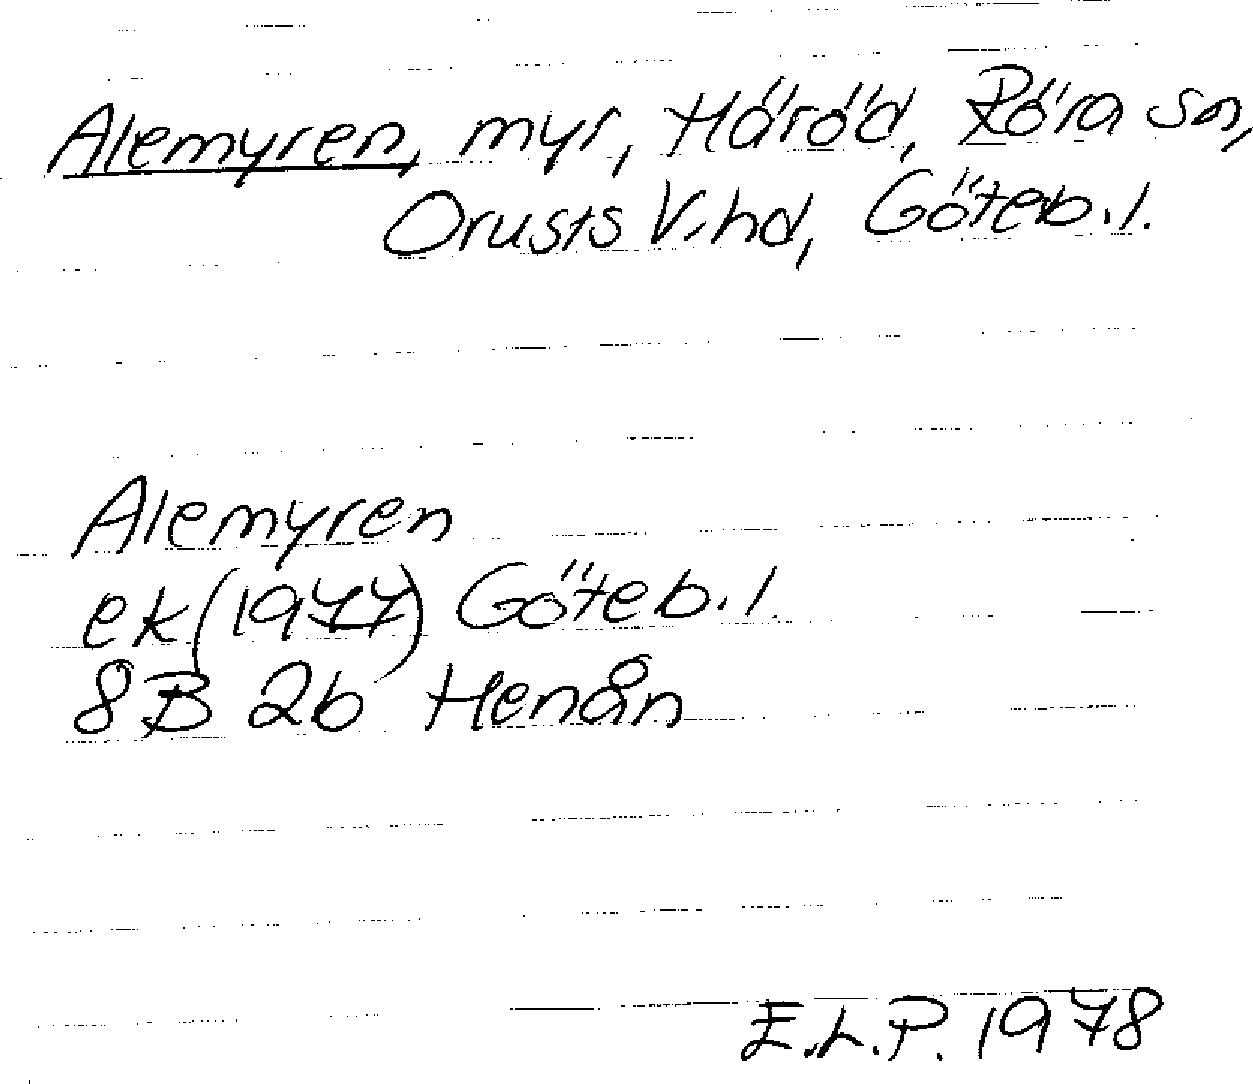 Alemyren, myr, Häröd, Röra sn,
Orusts V.hd, Göteb.l.
Alemyren
ek (1977) Göteb.l.
8B 2b Henån
E.L.P. 1978